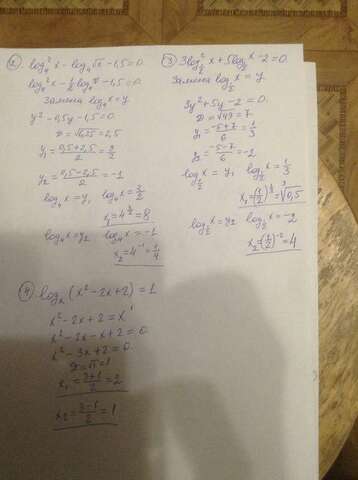 2) log₄²x - log₄√x - 1,5 = 0
log₄²x - 1/2 log₄x - 1,5 = 0
Замена log₄x = y
y² - 0,5y - 1,5 = 0
D = √6,25 = 2,5
y₁ = (0,5+2,5)/2 = 3/2
y₂ = (0,5-2,5)/2 = -1
log₄x = y₁ log₄x = 3/2
x₁ = 4^(3/2) = 8
log₄x = y₂ log₄x = -1
x₂ = 4⁻¹ = 1/4
3) 3log²_(1/2) x + 5log_(1/2) x - 2 = 0
Замена log_(1/2) x = y
3y² + 5y - 2 = 0.
D = √49 = 7
y₁ = (-5+7)/6 = 1/3
y₂ = (-5-7)/6 = -2
log_(1/2) x = y₁ log_(1/2) x = 1/3
x₁ = (1/2)^(1/3) = ³√0,5
log_(1/2) x = y₂ log_(1/2) x = -2
x₂ = (1/2)⁻² = 4
4) logₓ(x² - 2x + 2) = 1
x² - 2x + 2 = x¹
x² - 2x - x + 2 = 0
x² - 3x + 2 = 0
D = √1 = 1
x₁ = (3+1)/2 = 2
x₂ = (3-1)/2 = 1